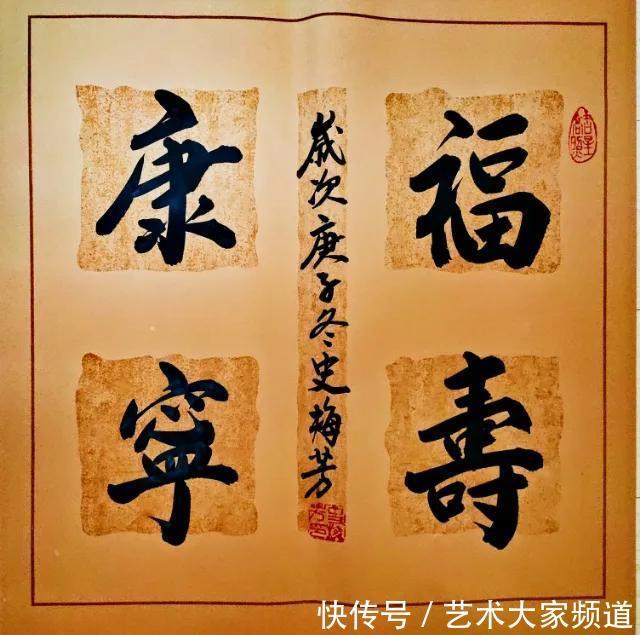 福
壽
歲次庚子冬史梅芳
康
寧
快传号 / 艺术大家频道